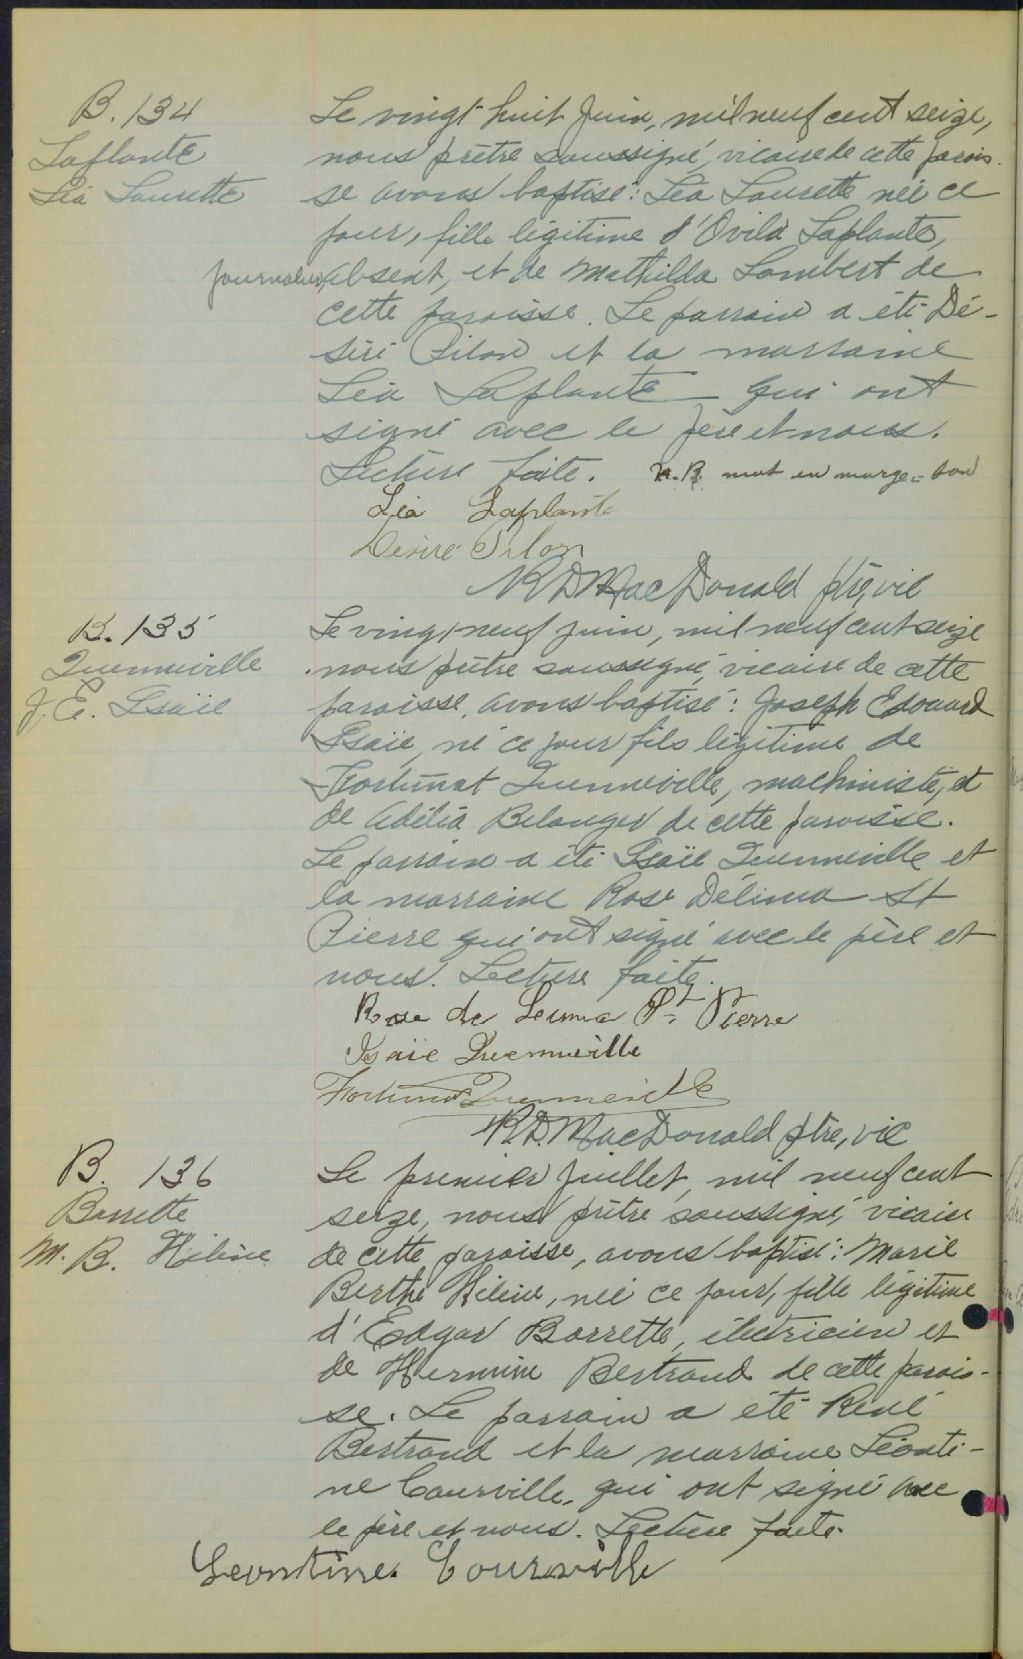 B. 134
Laplante
Léa Laurette
Le vingt huit Juin, mil neuf cent seize,
nous prêtre soussigné, vicaire de cette parois-
se avons baptisé: Léa Laurette née ce
jour, fille légitime d'Ovila Laplante,
journalier, absent, et de Mathilda Lambert de
cette paroisse. Le parrain a été Dé-
siré Pilon et la marraine
Léa Laplante qui ont
signé avec le père et nous.
Lecture faite. N.B. mot en marge = bon
Léa Laplante
Désiré Pilon
R D MacDonald ptre, vic
B. 135
Quenneville
J. E. Isaïe
Le vingt neuf juin, mil neuf cent seize
nous prêtre soussigné, vicaire de cette
paroisse, avons baptisé: Joseph Edouard
Isaïe, né ce jour fils légitime de
Fortunat Quenneville, machiniste, et
de Adélia Belanger de cette paroisse.
Le parrain a été Isaïe Quenneville et
la marraine Rose Délima St
Pierre qui ont signé avec le père et
nous. Lecture faite.
Rose de Lerma St Pierre
Isaïe Quenneville
Fortunat Quenneville
R. D. MacDonald ptre, vic
B. 136
Barrette
M. B. Hélène
Le premier Juillet, mil neuf cent
seize, nous prêtre soussigné, vicaire
de cette paroisse, avons baptisé: Marie
Berthe Hélène, née ce jour, fille légitime
d'Edgar Barrette, électricien et
de Hermine Bertrand de cette parois-
se. Le parrain a été René
Bertrand et la marraine Léonti-
ne Courville, qui ont signé avec
le père et nous. Lecture faite.
Leontine Courville